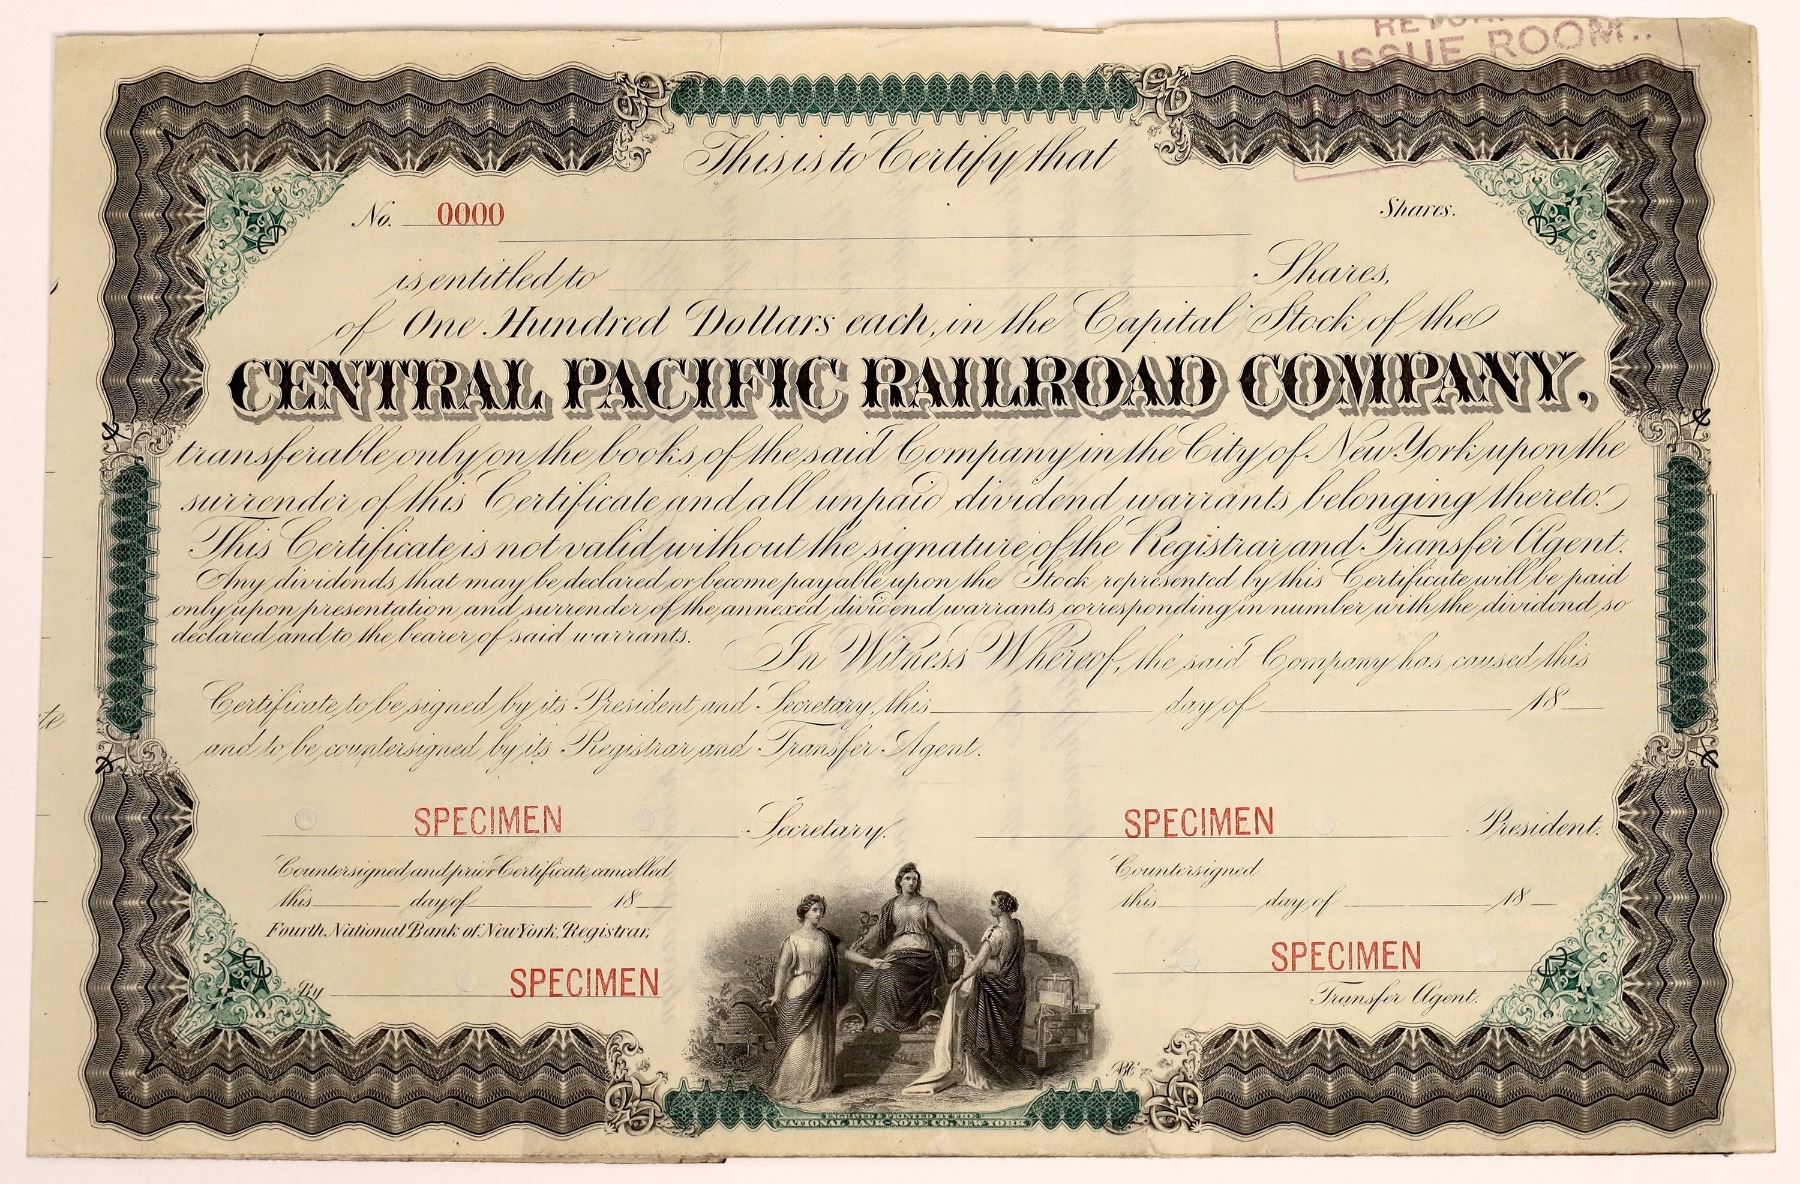 ISSUE ROOM..
This is to Certify that
No. 0000 Shares.
is entitled to Shares,
of One Hundred Dollars each, in the Capital Stock of the
CENTRAL PACIFIC RAILROAD COMPANY,
transferable only on the books of the said Company in the City of New York upon the
surrender of this Certificate and all unpaid dividend warrants belonging thereto.
This Certificate is not valid without the signature of the Registrar and Transfer Agent.
Any dividends that may be declared or become payable upon the Stock represented by this Certificate will be paid
only upon presentation and surrender of the annexed dividend warrants corresponding in number with the dividend so
declared and to the bearer of said warrants.
In Witness Whereof, the said Company has caused this
Certificate to be signed by its President and Secretary, this day of 18
and to be countersigned by its Registrar and Transfer Agent.
SPECIMEN Secretary. SPECIMEN President.
Countersigned and prior Certificate cancelled
this day of 18
Fourth National Bank of New York, Registrar,
By SPECIMEN
Countersigned
this day of 18
SPECIMEN
Transfer Agent.
ENGRAVED & PRINTED BY THE
NATIONAL BANK-NOTE CO. NEW YORK